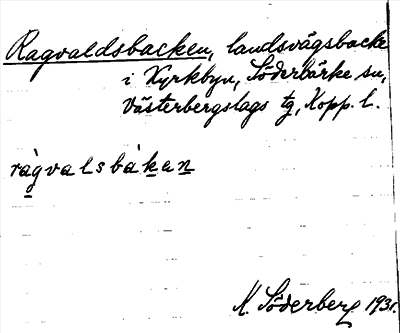 Ragvaldsbacken, landsvägsbacke
i Kyrkbyn, Söderbärke sn,
Västerbergslags tg, Kopp. l.
ràgvalsbàken
M. Söderberg 1931.